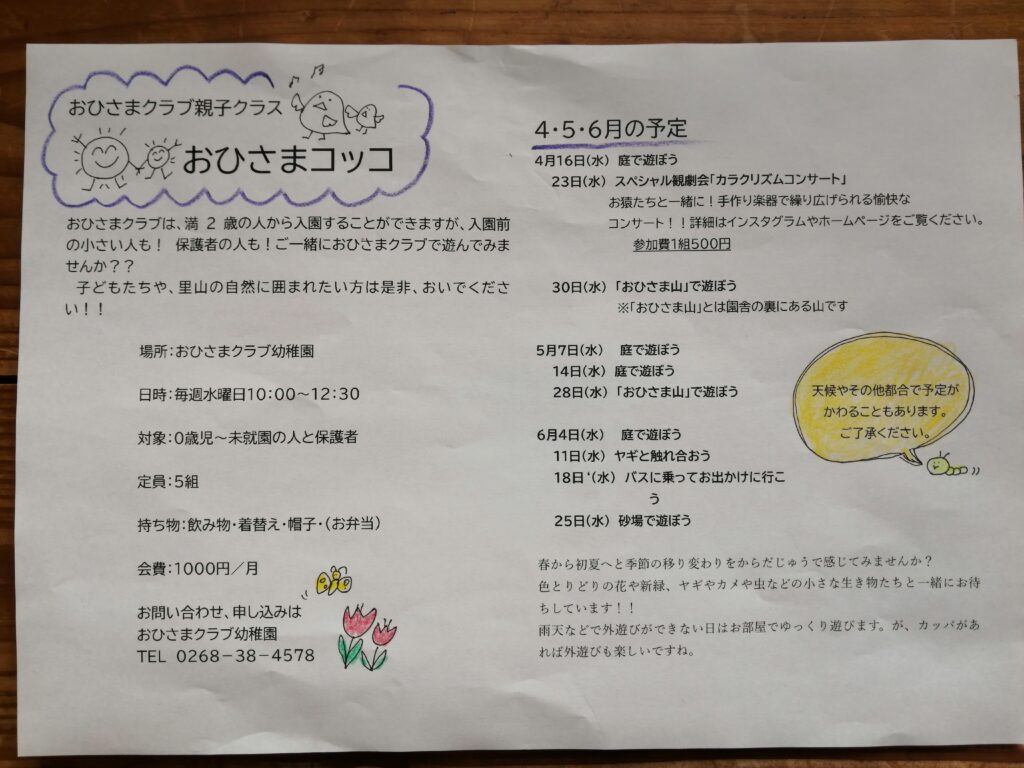 おひさまクラブ親子クラス
おひさまコッコ
おひさまクラブは、満 2 歳の人から入園することができますが、入園前
の小さい人も! 保護者の人も!ご一緒におひさまクラブで遊んでみま
せんか??
子どもたちや、里山の自然に囲まれたい方は是非、おいでくださ
い!!
場所:おひさまクラブ幼稚園
日時:毎週水曜日10:00~12:30
対象:0歳児~未就園の人と保護者
定員:5組
持ち物:飲み物・着替え・帽子・(お弁当)
会費:1000円/月
お問い合わせ、申し込みは
おひさまクラブ幼稚園
TEL 0268-38-4578
4・5・6月の予定
4月16日(水) 庭で遊ぼう
23日(水) スペシャル観劇会「カラクリズムコンサート」
お猿たちと一緒に!手作り楽器で繰り広げられる愉快な
コンサート!!詳細はインスタグラムやホームページをご覧ください。
参加費1組500円
30日(水) 「おひさま山」で遊ぼう
※「おひさま山」とは園舎の裏にある山です
5月7日(水) 庭で遊ぼう
14日(水) 庭で遊ぼう
28日(水) 「おひさま山」で遊ぼう
6月4日(水) 庭で遊ぼう
11日(水) ヤギと触れ合おう
18日‘(水) バスに乗ってお出かけに行こ
う
25日(水) 砂場で遊ぼう
天候やその他都合で予定が
かわることもあります。
ご了承ください。
春から初夏へと季節の移り変わりをからだじゅうで感じてみませんか?
色とりどりの花や新緑、ヤギやカメや虫などの小さな生き物たちと一緒にお待
ちしています!!
雨天などで外遊びができない日はお部屋でゆっくり遊びます。が、カッパがあ
れば外遊びも楽しいですね。